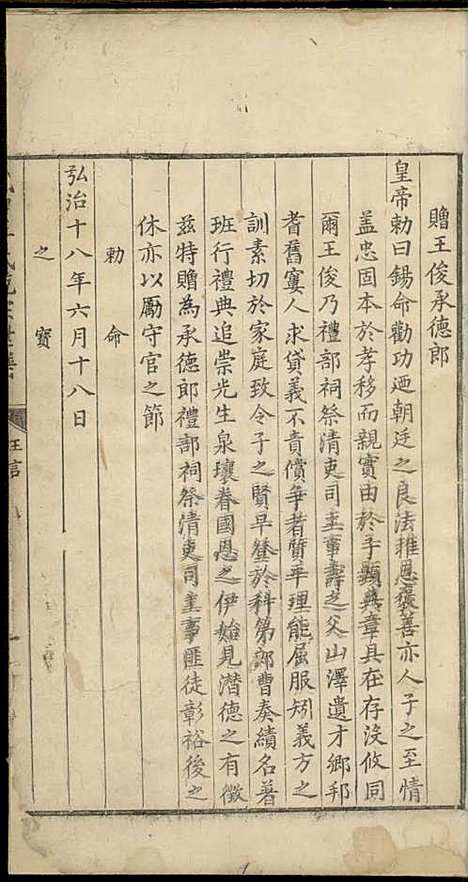 贈王俊承德郎
皇帝勅曰錫命勸功迺朝廷之良法推恩褒善亦人子之至情
盖忠固本於孝移而親實由於子顯典章具在存沒攸同
爾王俊乃禮部祠祭清吏司主事壽之父山澤遺才鄉邦
耆舊寠人求貸義不責償爭者質平理能屈服矧義方之
訓素切於家庭致令子之賢早登於科第郎曹奏績名著
班行禮典追崇光生泉壤眷國恩之伊始見潛德之有徵
兹特贈為承德郎禮部祠祭清吏司主事匪徒彰裕後之
休亦以厲守官之節
勅命
弘治十八年六月十八日
之寶